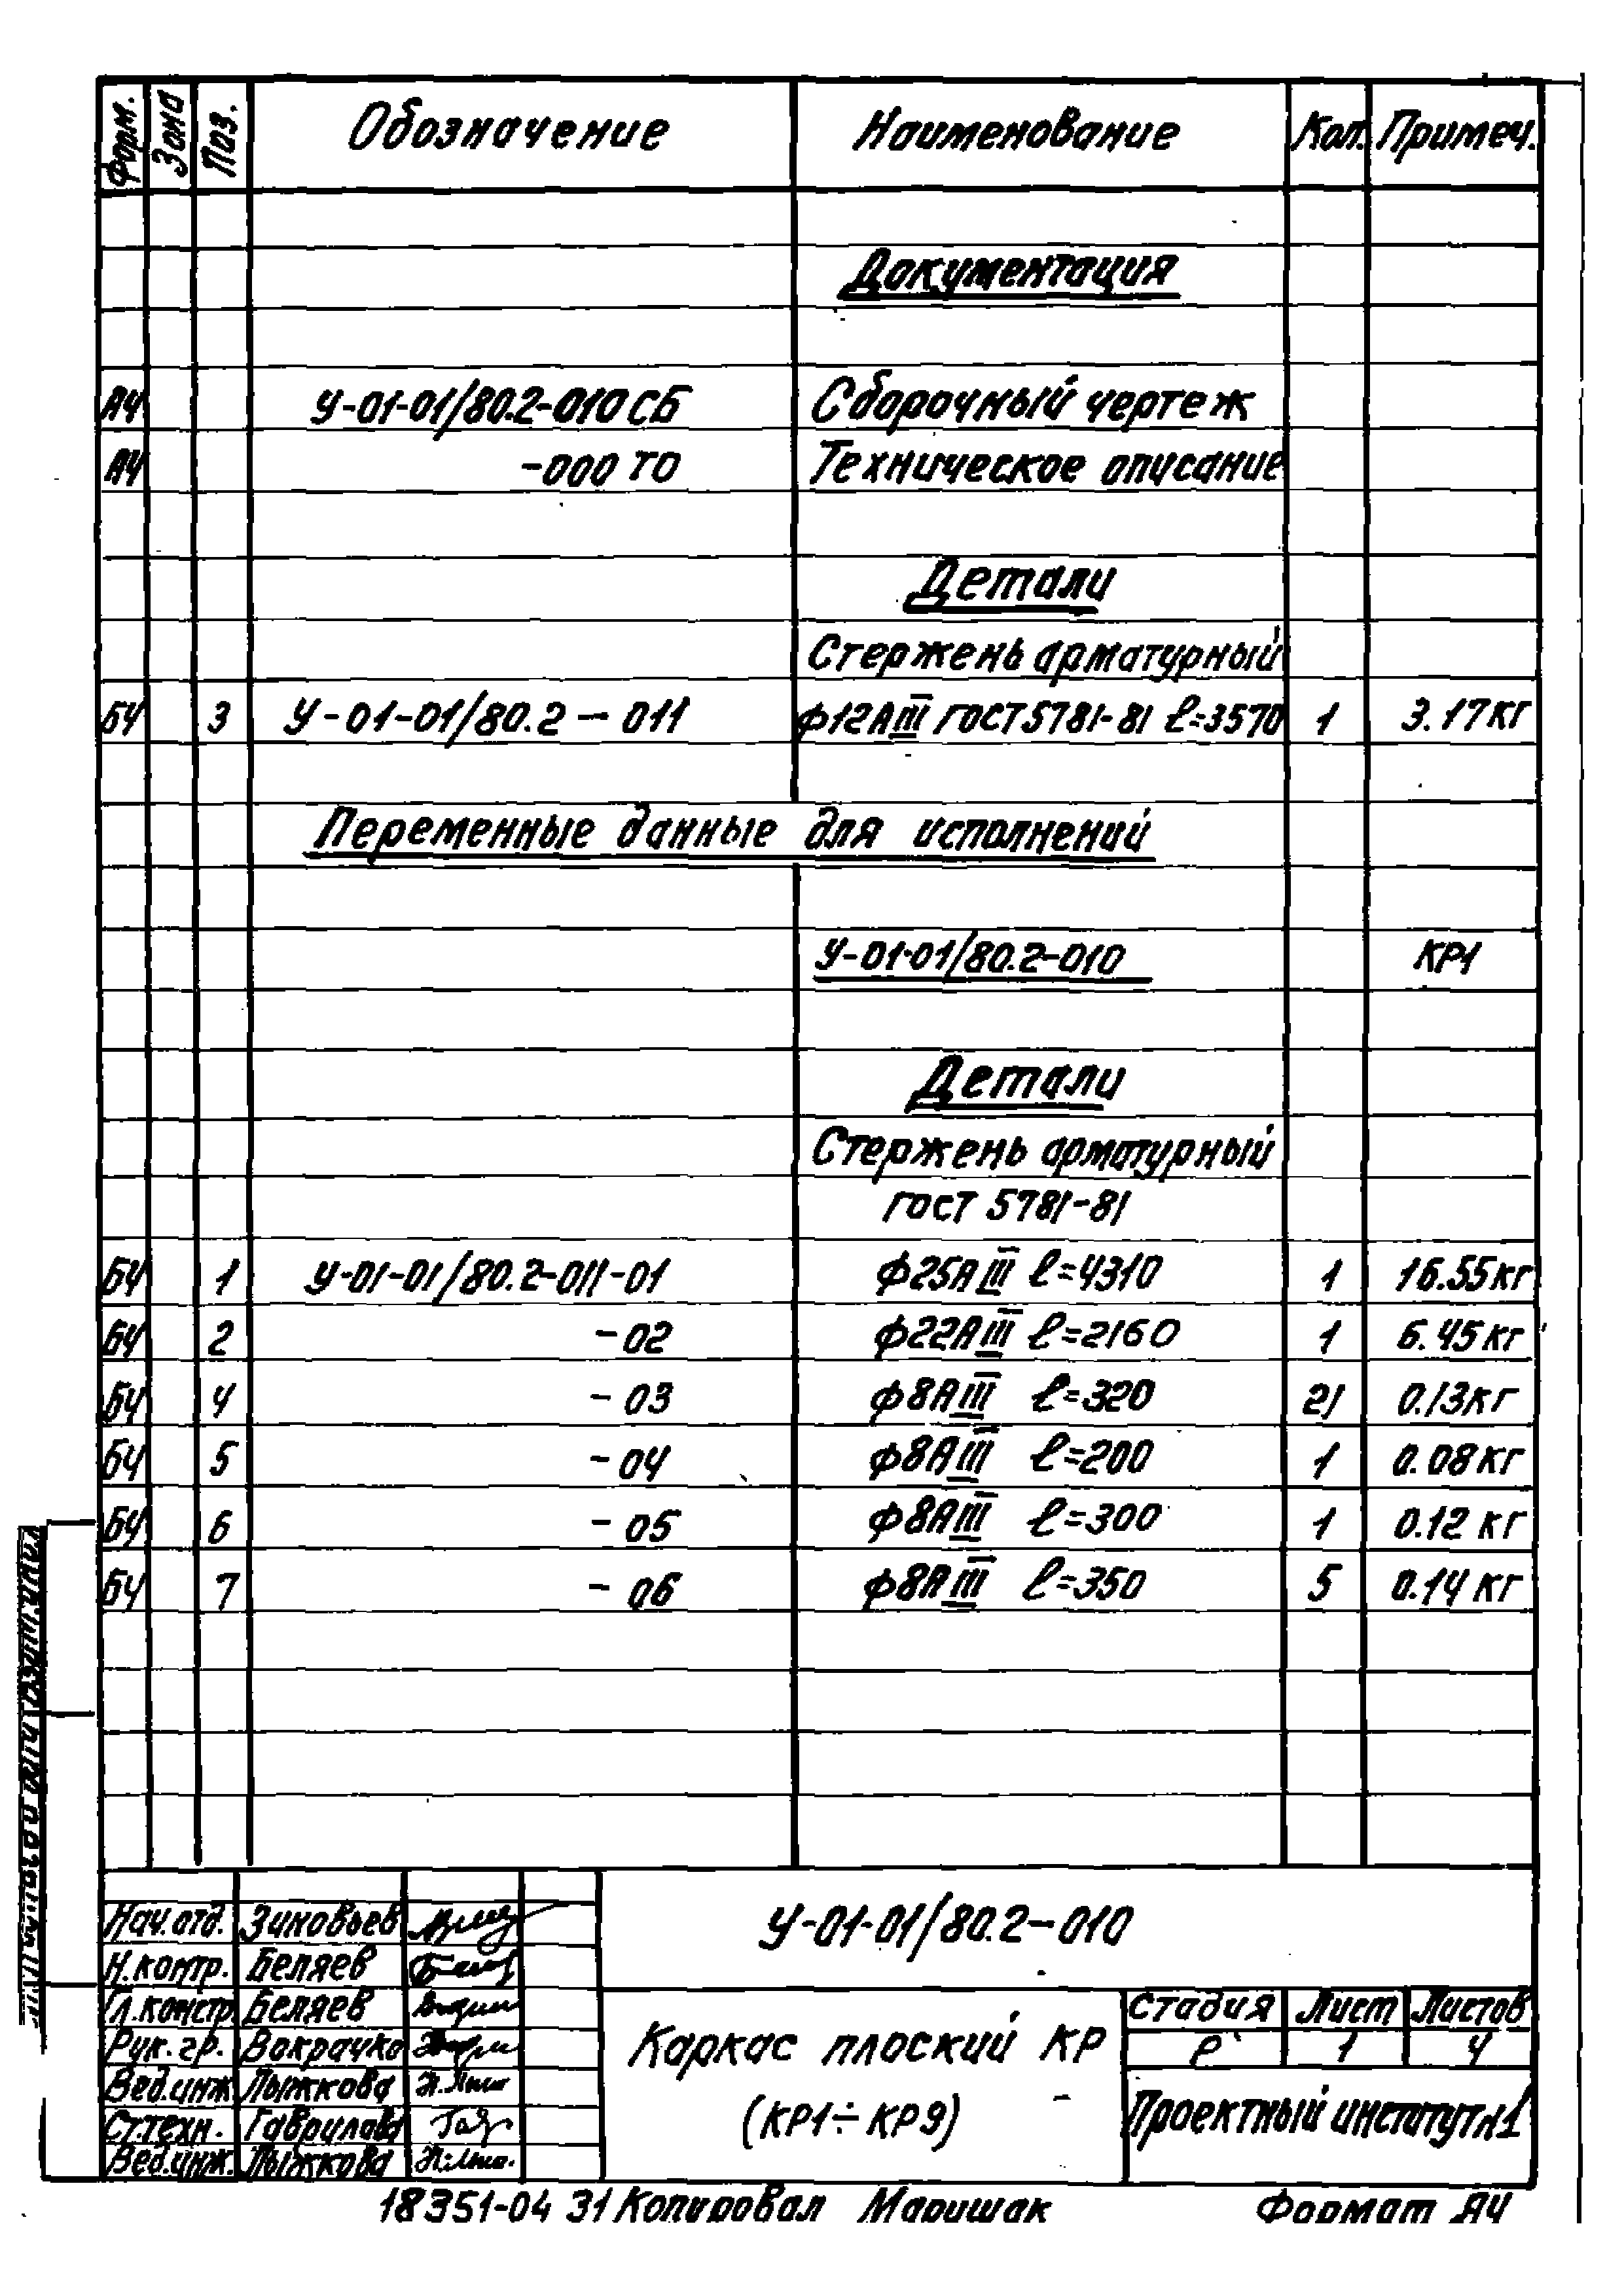 Форм. Зона Поз. Обозначение Наименование Кол. Примеч.
Документация
А4 У-01-01/80.2-010 СБ Сборочный чертеж
А4 -000 ТО Техническое описание
Детали
Стержень арматурный
БЧ 3 У-01-01/80.2-011 ф12АIII ГОСТ 5781-81 ℓ=3570 1 3.17кг
Переменные данные для исполнений
У-01-01/80.2-010 КР1
Детали
Стержень арматурный
ГОСТ 5781-81
БЧ 1 У-01-01/80.2-011-01 ф25АIII ℓ=4310 1 16.55кг
БЧ 2 -02 ф22АIII ℓ=2160 1 6.45кг
БЧ 4 -03 ф8АIII ℓ=320 21 0.13кг
БЧ 5 -04 ф8АIII ℓ=200 1 0.08кг
БЧ 6 -05 ф8АIII ℓ=300 1 0.12 кг
БЧ 7 -06 ф8АIII ℓ=350 5 0.14 кг
У-01-01/80.2-010
Нач.отд. Зиновьев
Н.контр. Беляев
Гл.констр. Беляев
Рук.гр. Вокрачко
Вед.инж. Лыжкова
Ст.техн. Гаврилова
Вед.инж. Лыжкова
Каркас плоский КР
(КР1÷КР9)
Стадия Лист Листов
Р 1 4
Проектный институт№1
18351-04 31 Копировал Маришак Формат А4